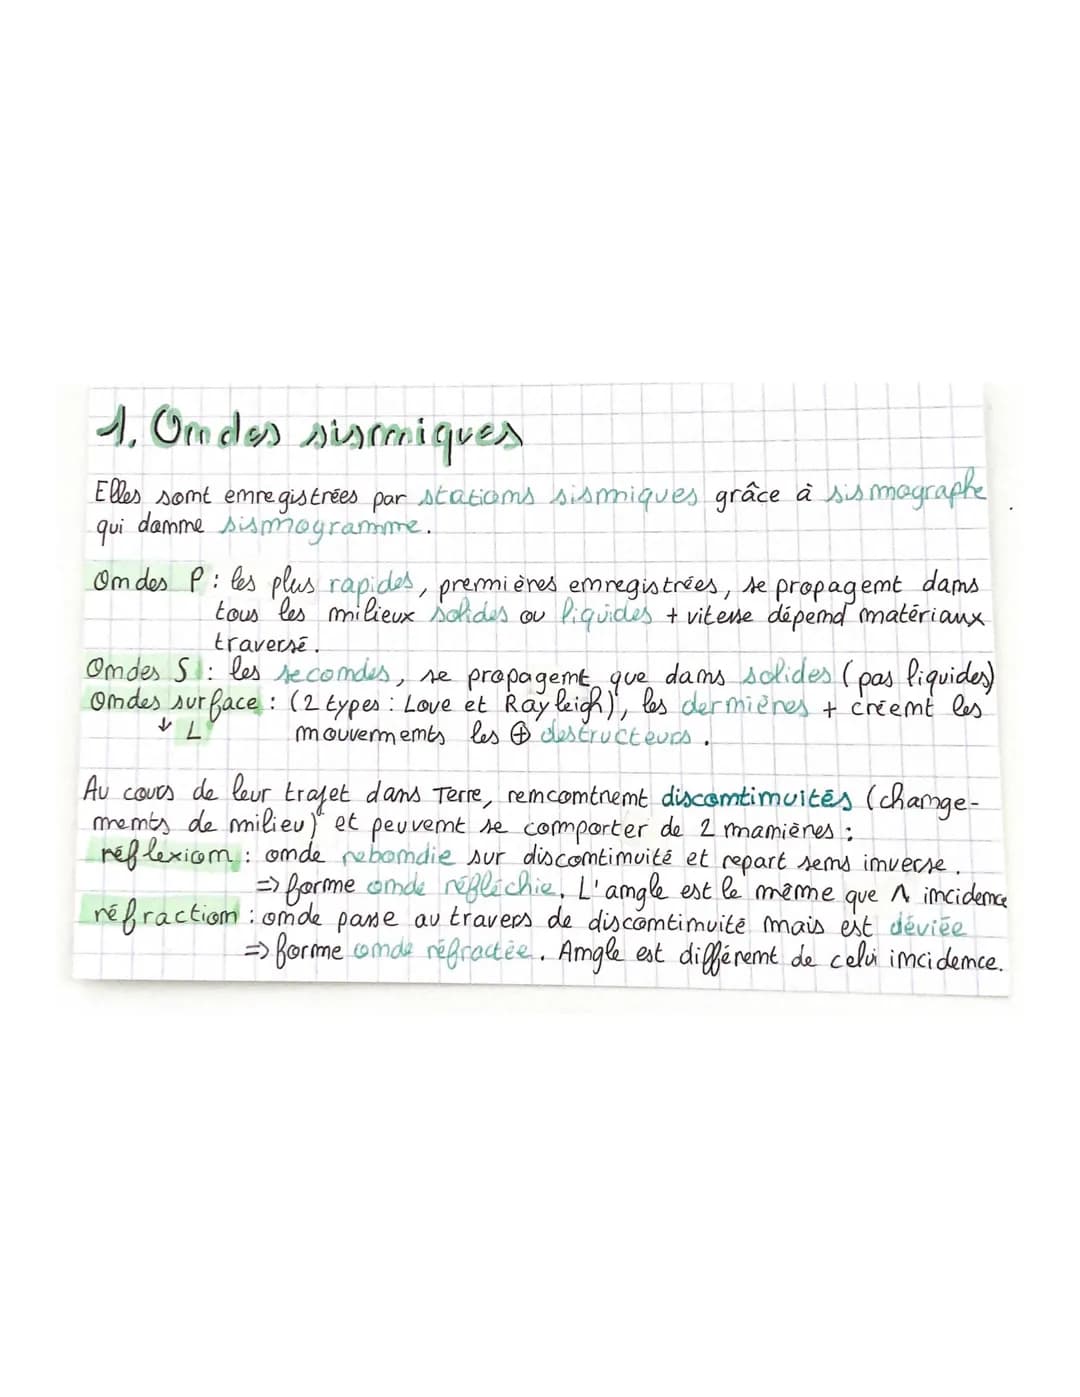 1. Ondes sismiques
Elles sont enregistrées par stations sismiques grâce à sismographe
qui donne sismogramme.
Ondes P : les plus rapides, premières enregistrées, se propagent dans
tous les milieux solides ou liquides + vitesse dépend matériaux
traversé.
Ondes S : les secondes, se propagent que dans solides (pas liquides)
Ondes surface : (2 types : Love et Rayleigh), les dernières + créent les
↓ L mouvements les ⊕ destructeurs.
Au cours de leur trajet dans Terre, rencontrent discontinuités (change-
ments de milieu) et peuvent se comporter de 2 manières :
réflexion : onde rebondie sur discontinuité et repart sens inverse.
=> forme onde réfléchie. L'angle est le même que Λ incidence
réfraction : onde passe au travers de discontinuité mais est déviée
=> forme onde réfractée. Angle est différent de celui incidence.